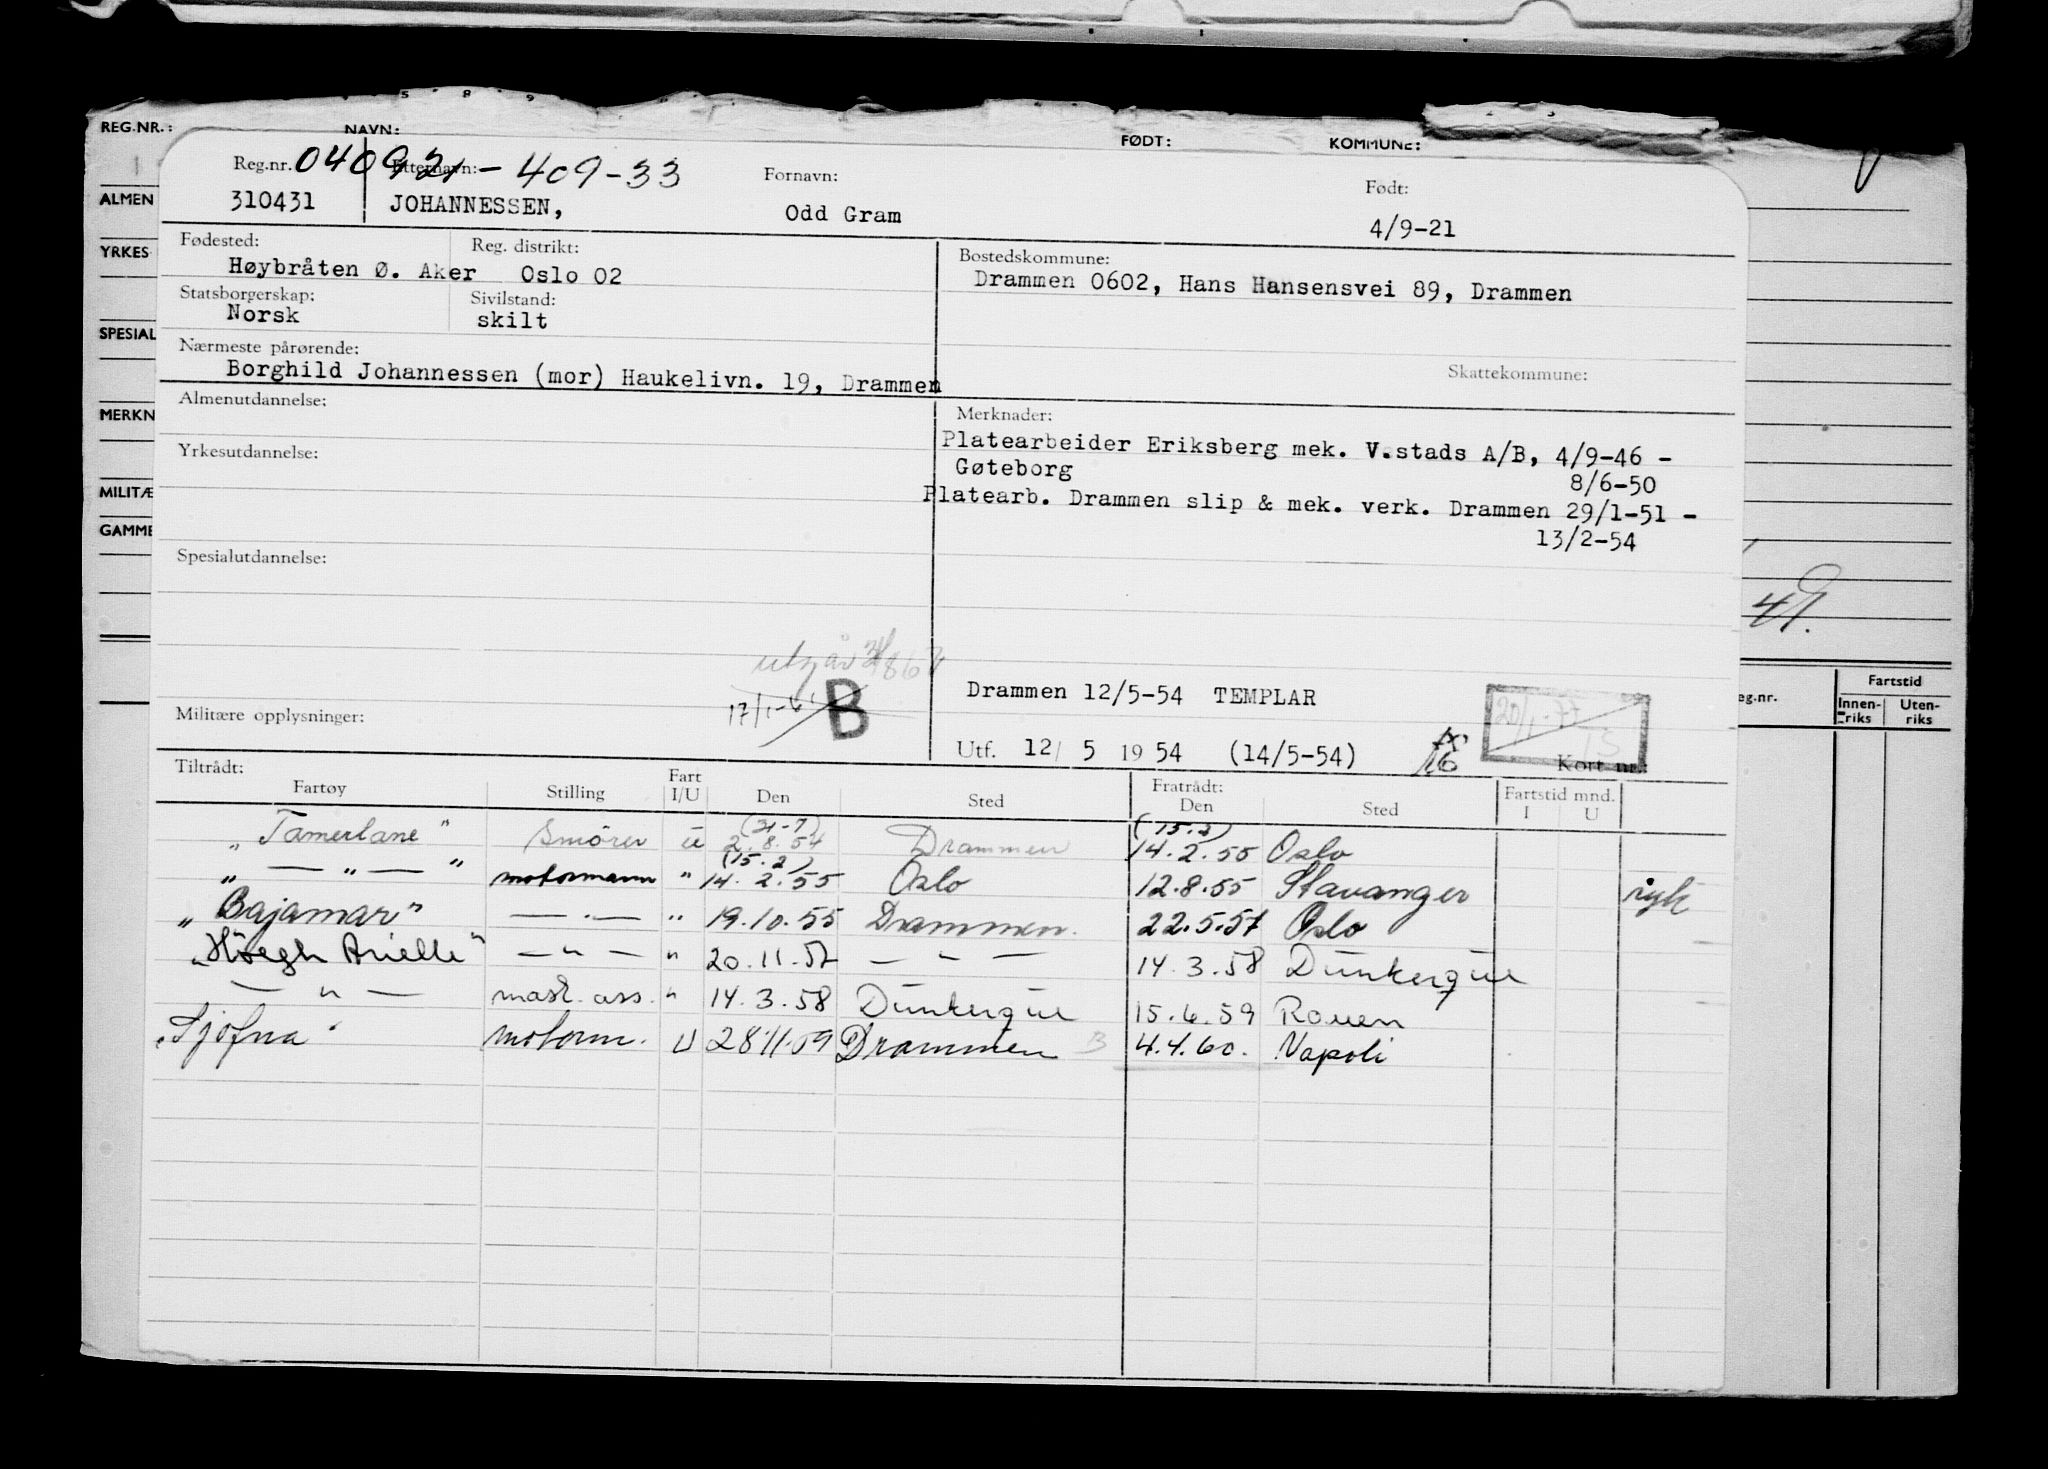 REG.NR.: NAVN: FØDT: KOMMUNE:
Reg.nr. 040921-409-33 Etternavn: Fornavn: Født:
310431 JOHANNESSEN, Odd Gram 4/9-21
ALMEN
YRKES
SPESIAL
MERKN
MILITÆ
GAMME
Fødested: Reg. distrikt: Bostedskommune:
Høybråten Ø. Aker Oslo 02 Drammen 0602, Hans Hansensvei 89, Drammen
Statsborgerskap: Sivilstand:
Norsk skilt
Nærmeste pårørende: Skattekommune:
Borghild Johannessen (mor) Haukelivn. 19, Drammen
Almenutdannelse: Merknader:
Platearbeider Eriksberg mek. V.stads A/B, 4/9-46 -
Yrkesutdannelse: Gøteborg 8/6-50
Platearb. Drammen slip & mek. verk. Drammen 29/1-51 -
13/2-54
Spesialutdannelse:
49.
utgår
17/1-61 B
Drammen 12/5-54 TEMPLAR
20/1-77
Militære opplysninger:
Utf. 12/ 5 19 54 (14/5-54) 16 Kort nr.:
eg.nr. Fartstid
Innen-riks Uten-riks
Tiltrådt: Fratrådt:
Fartøy Stilling Fart I/U Den Sted Den Sted Fartstid mnd. I U
„Tamerlane" Smører u (31-7) 2.8.54 Drammen (15.2) 14.2.55 Oslo
„ — „ — " motormann " (15.2) 14.2.55 Oslo 12.8.55 Stavanger syk
„Bajamar" — . — " 19.10.55 Drammen. 22.5.57 Oslo
„Höegh Arielle" — " — " 20.11.57 — " — 14.3.58 Dunkerque
— " — mask. ass. " 14.3.58 Dunkerque 15.6.59 Rouen
„Sjofna" motorm. U 28.11.59 Drammen B 4.4.60. Napoli